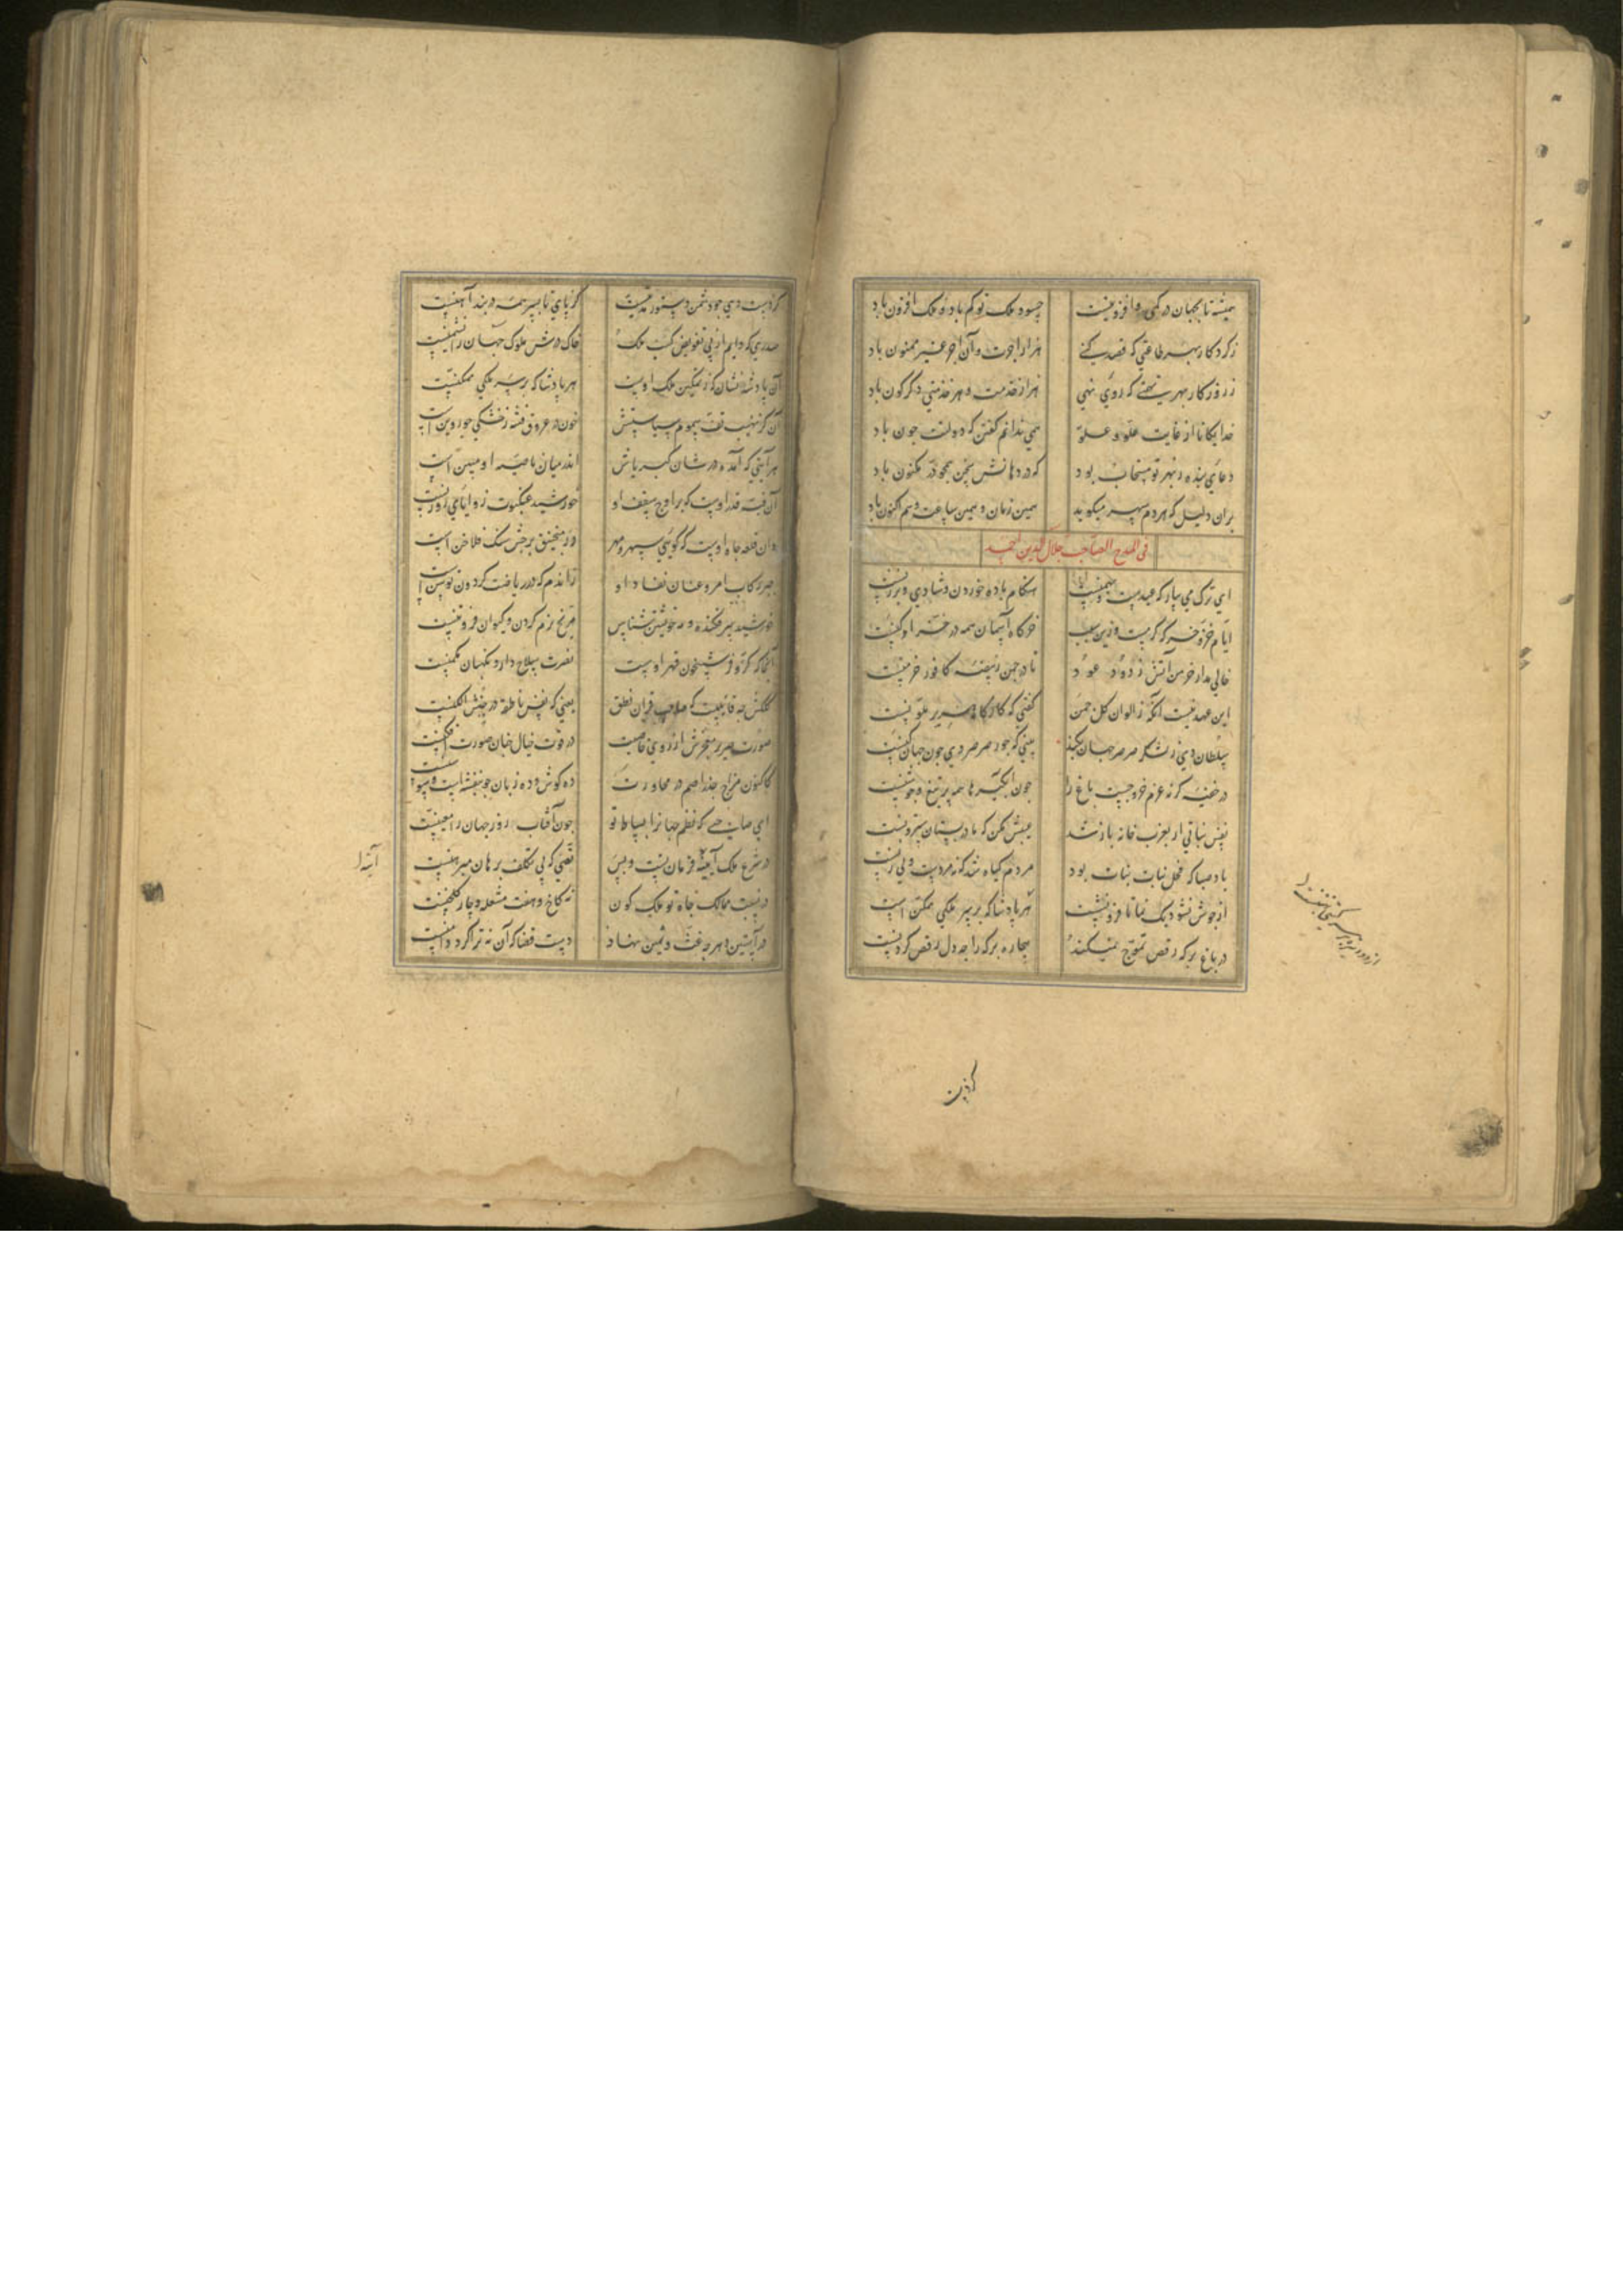 همیشه تا بجهان در کمی و افزونیست حسود ملک تو کم باد و ملک افزون باد
ز کردکار بهر طاعتی که قصد کنی هزار اجرت و آن اجر غیر ممنون باد
ز روزکار بهر نهمتی که روی نهی هزار خدمت و هر خدمتی دکرکون باد
خدایکانا از غایت غلو و علو همی ندانم کفتن که دولتت جون باد
دعای بنده بهر تو مستجاب بود که در دهانش سخن همجو در مکنون باد
بران دلیل که هر دم سپهر میکوید همین زمان و همین ساعت و هم اکنون باد
فی المدح الصاحب جلال الدین احمد
ای ترک می بیار که عیدست و بهمنست هنکام باده خوردن و شادی و برزنست
ایام خز و خرکه کرمست و زین سبب خرکاه آسمان همه در خز ادکنست
خالی مدار خرمن آتش ز دود عود تا در جمن ز بیضه کافور خرمنست
این عهد نیست آنکه ز الوان کل جمن کفتی که کارکاه حریر ملونست
سلطان دی ز لشکر صرصر جهان بکند بینی که جور صرصر دی جون جهان کنست
در خفیه کر نه عزم خروجست باغ را جون آبکیرها همه پر تیغ و جوشنست
نفس نباتی ار بعزب خانه باز شد عیبش مکن که مادر بستان سترونست
باد صبا که فحل بنات نبات بود مردم کیاه شد که نه مردست و نی زنست
از جوش نشو دیک نما تا فرو نشست هر پادشا که بر سر ملکی ممکن است
در باغ برکه رقص تموج نمیکند بیجاره برکه را جه دل رقص کردنست
کز دست
کر دست دی جو دشمن دستور مدنیست کز پای تا بسر همه در بند آهنست
صدری که دایم از پی تفویض کسب ملک خاک درش ملوک جهان را نشیمنست
آن پادشه نشان که ز تمکین ملک اوست هر پادشا که بر سر ملکی ممکنست
آن کز نهیب تف سموم سیاستش خون در عروق فتنه ز خشکی جو روین است
هر آیتی که آمده در شان کبریاش اندر میان ناصیه او مبین است
آن قبه قدر اوست که بر اوج سقف او خورشید عنکبوت زوایای روزنست
وان قلعه جاه اوست که کویی سپهر و مهر در منجنیق برجش سنک فلاخن است
جبر رکاب امر و عنان نفاد او زاندم که در ریاضت کردون توسن است
خورشید سر فکنده و مه خویشتن شناس مریخ نرم کردن و کیوان فروتنست
آنجا که کر و فر شبیخون قهر اوست نصرت سلاح دار و نکهبان مکمنست
کلکش جه قایلیست که صاحب قران نطق یعنی که نفس ناطقه در جنبش الکنست
صوت صریر معجزش از روی خاصیت در قوت خیال جنان صورت افکنست
کاکنون مزاج جذر اصم در محاورت ده کوش و ده زبان جو بنفشه است و سوسنست
ای صاحبی که نظم جهان را بساط تو جون آفتاب روز جهان را معینست
در شرع ملک آیینه فرمان تست و بس نصی که بی تکلف برهان مبرهنست
در نسبت ممالک جاه تو ملک کون نه کاخ و هفت مشعله و چار کلخنست
در آستین دهر جه غث و سمین نهاد دست قضا که آن نه ترا کرد دامنست